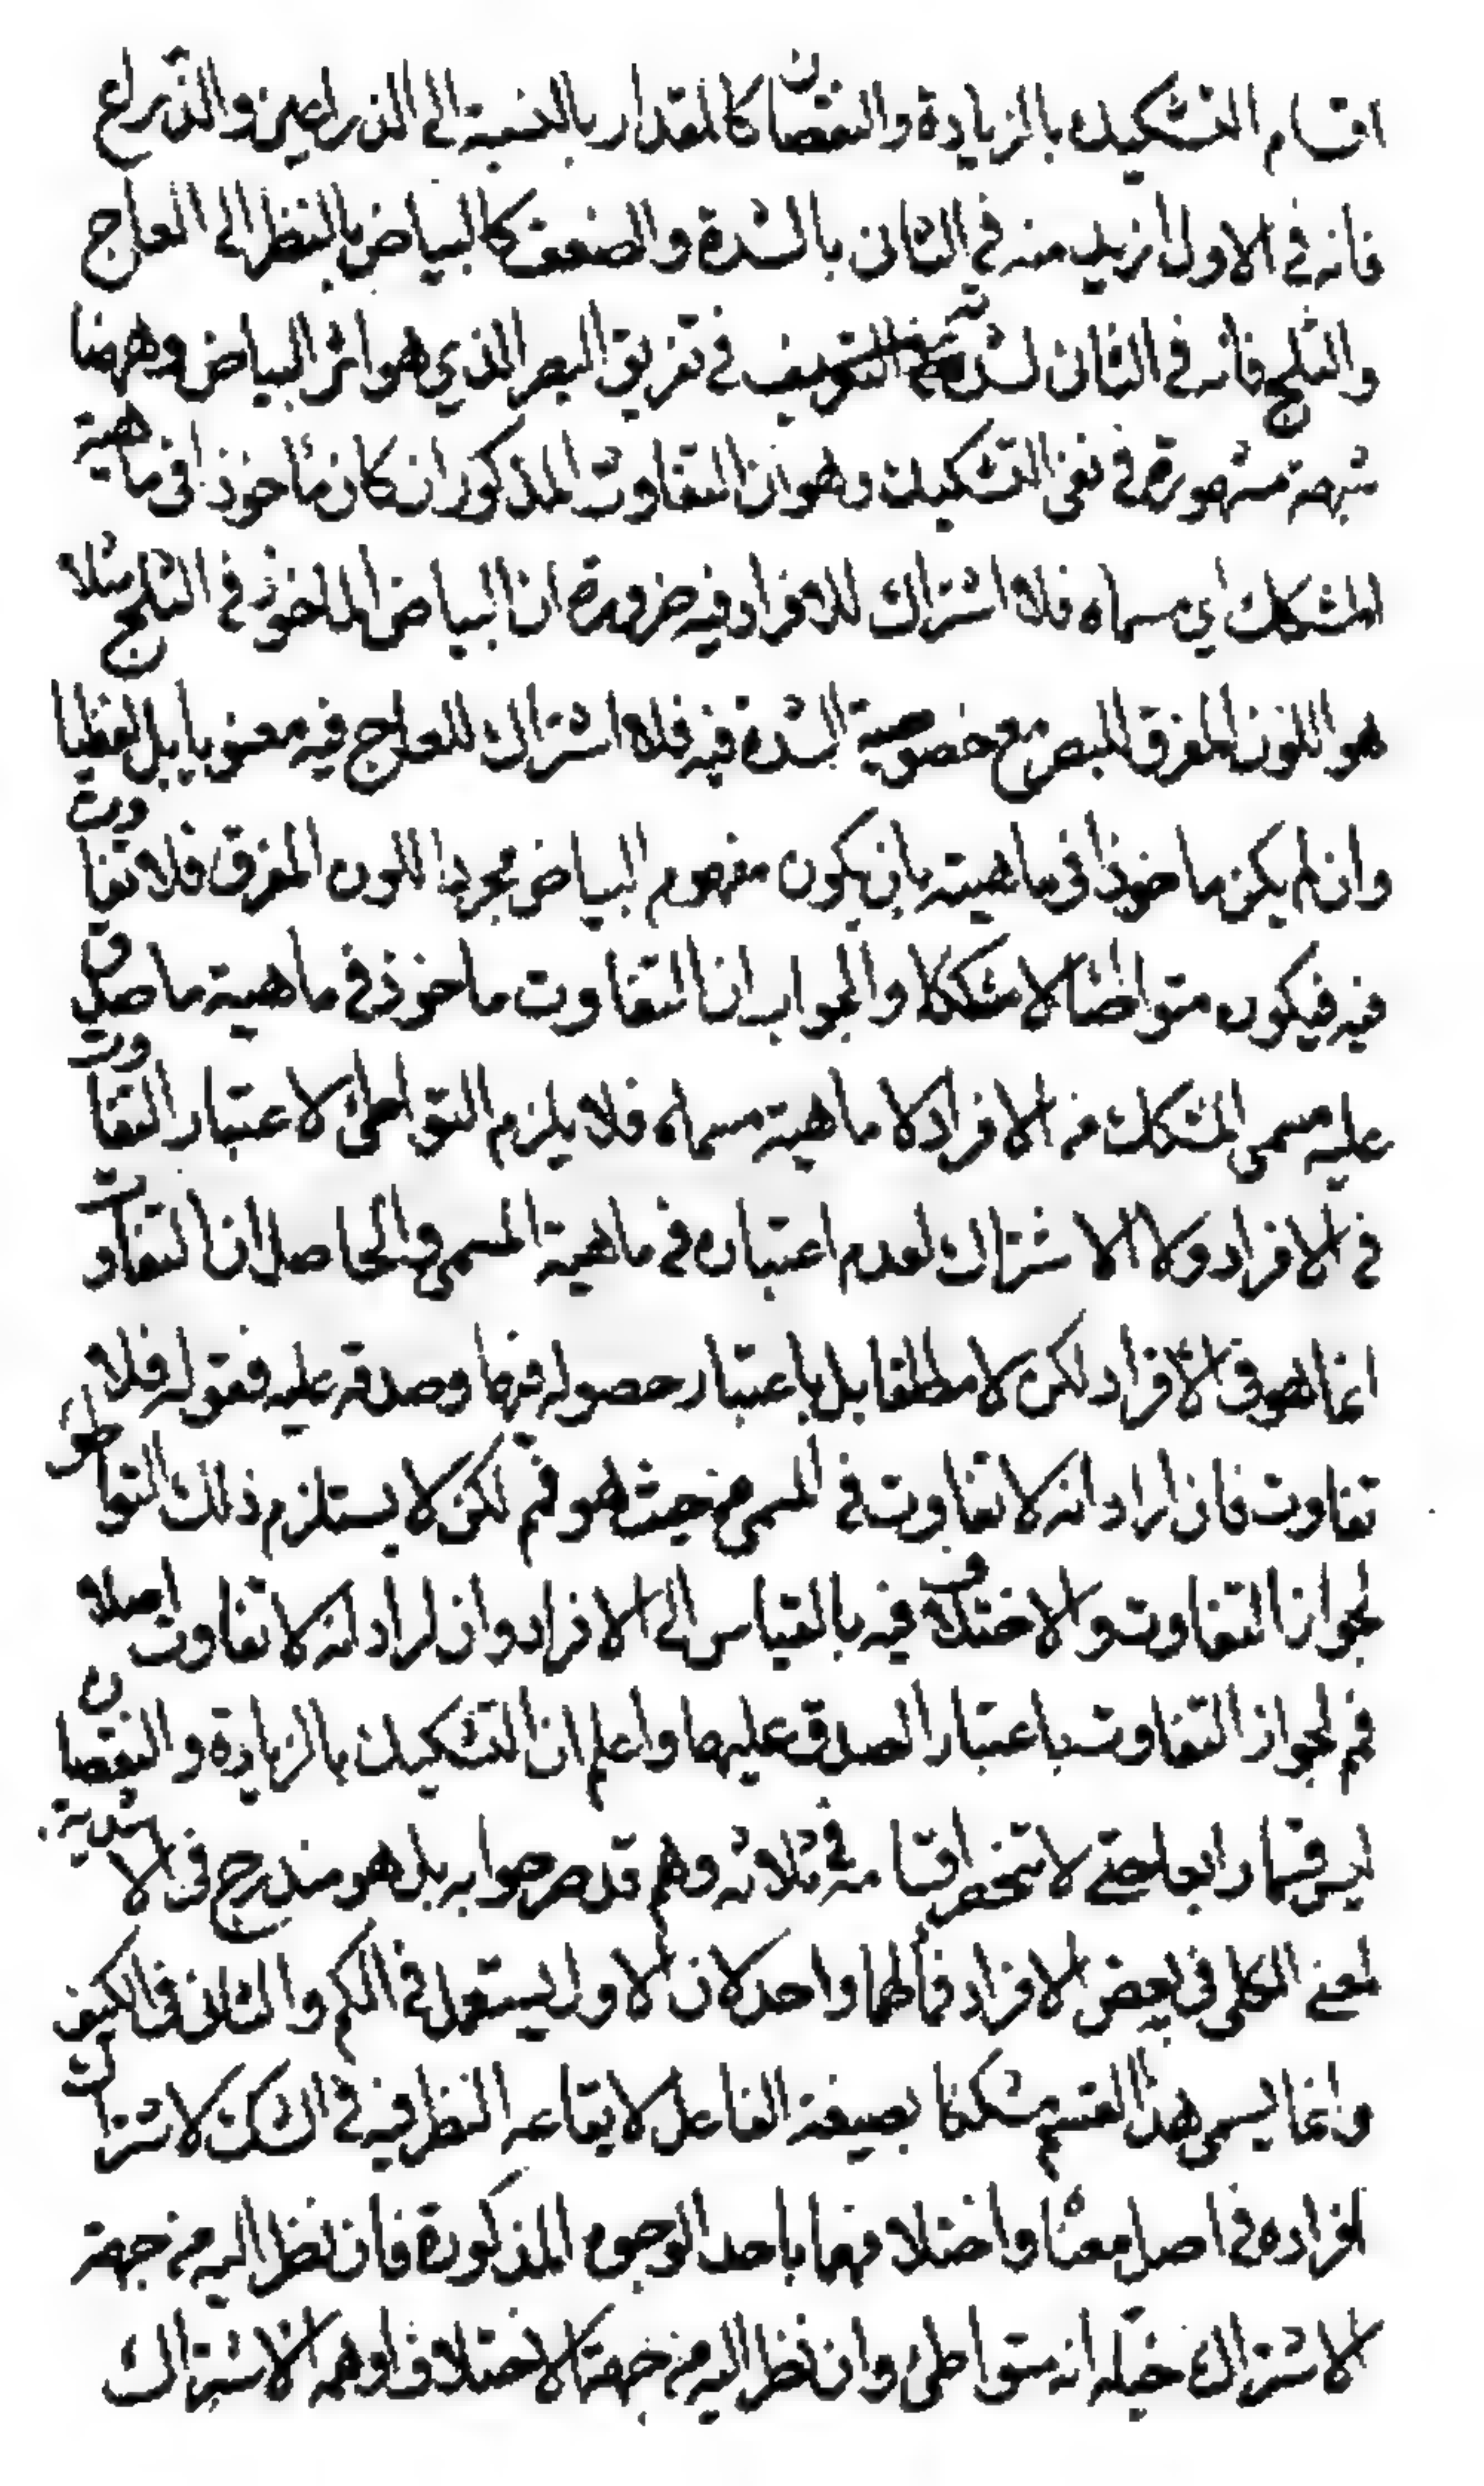 اقسام التشكيك بالزيادة والنقصان كالمقدار بالنسبة الى الذراعين والذراع
فانه في الاول ازيد منه في الثاني بالشدة والضعف كالبياض بالنظر الى العاج
والثلج فانه في الثاني لشدته في تفريق البصر الذي هو اثر البياض وههنا
شبهة مشهورة في نفى التشكيك وهو ان التفاوت المذكور ان كان مأخوذا فى ماهية
المشكك اي مسماه فلا اشتراك للافراد فيه ضرورة ان البياض الماخوذ في الثلج مثلا
هو اللون المفرق للبصر مع خصوصية الشدة فيه فلا اشتراك للعاج فيه معنويا بل لفظيا
وان لم يكن ماخوذا فى ماهيته بان يكون مفهوم البياض مجرد اللون المفرق فلا تفاوت
فيه فيكون متواطئا لا مشككا والجواب ان التفاوت ماخوذ في ماهية ما صدق
عليه مسمى المشكك من الافراد لا ماهية مسماه فلا يلزم التواطئ لاعتبار التفاوت
في الافراد ولا الاشتراك لعدم اعتباره في ماهية المسمى والحاصل ان التفاوت
انما هو فى الافراد لكن لا مطلقا بل باعتبار حصوله فيها وصدقه عليه فقوله فلا
تفاوت فان اراد انه لا تفاوت في المسمى من حيث هو فم لكن لا يستلزم ذلك التواطؤ
لجواز التفاوت والاختلاف فيه بالقياس الى الافراد وان اراد انه لا تفاوت اصلا
فم لجواز التفاوت باعتبار الصدق عليها واعلم ان التشكيك بالزيادة والنقصان
ليس قسما رابعا حتى لا تنحصر اقسامه في ثلاثه وهم قد صرحوا به بل هو مندرج فى الاشدية
لمعنى الكلى فى بعض الافراد فمآلهما واحد لان الاول يستعمل في الكم والثانى فى الكيف
وانما يسمى هذا القسم مشككا بصيغة الفاعل لايقاعه النظر فيه في الشك لاشتراك
افراده في اصل معناه واختلافها باحد الوجوه المذكورة فان نظر اليه من جهة
الاشتراك خيله انه متواطئ وان نظر اليه من جهة الاختلاف اوهمه الاشتراك